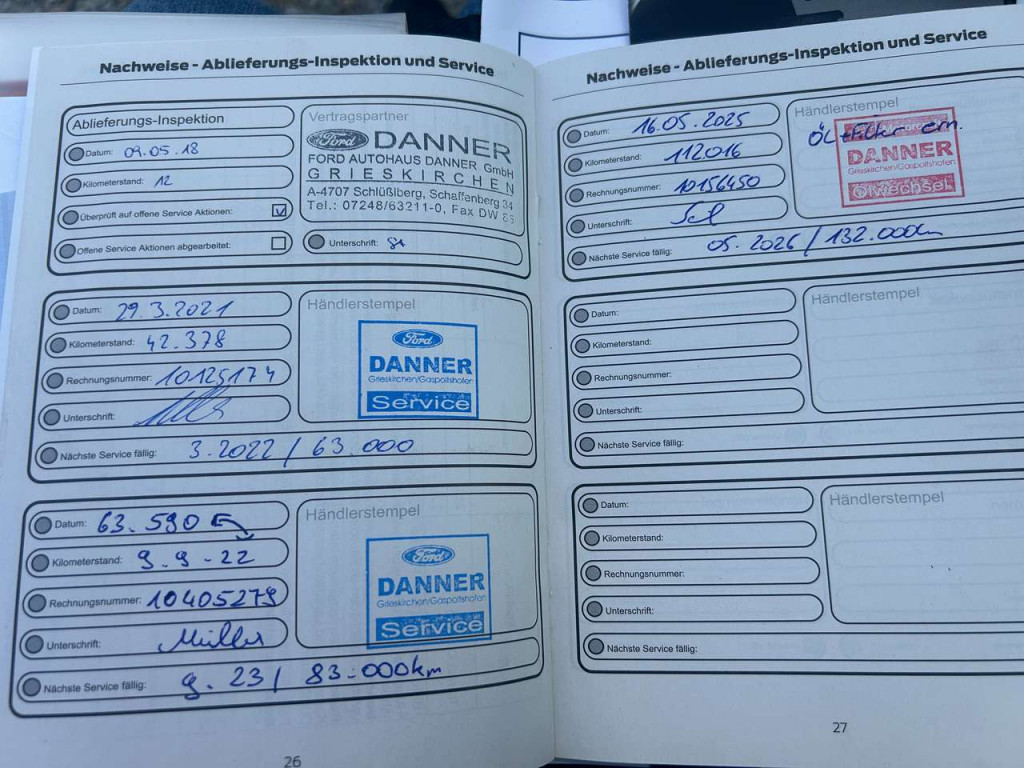 Nachweise - Ablieferungs-Inspektion und Service
Ablieferungs-Inspektion
Datum: 09.05.18
Kilometerstand: 12
Überprüft auf offene Service Aktionen:
Offene Service Aktionen abgearbeitet:
Vertragspartner
Ford DANNER
FORD AUTOHAUS DANNER GmbH
GRIESKIRCHEN
A-4707 Schlüßlberg, Schaffenberg 34
Tel.: 07248/63211-0, Fax DW
Unterschrift:
Datum: 29.3.2021
Kilometerstand: 42.378
Rechnungsnummer: 10125174
Unterschrift:
Nächste Service fällig: 3.2022 / 63.000
Händlerstempel
Ford
DANNER
Grieskirchen/Gaspoltshofen
Service
Datum: 63.590
Kilometerstand: 9.9.-22
Rechnungsnummer: 10405279
Unterschrift: Müller
Nächste Service fällig: 9.23 / 83.000km
Händlerstempel
Ford
DANNER
Grieskirchen/Gaspoltshofen
Service
26
Nachweise - Ablieferungs-Inspektion und Service
Datum: 16.05.2025
Kilometerstand: 112016
Rechnungsnummer: 10156450
Unterschrift:
Nächste Service fällig: 05.2026 / 132.000km
Händlerstempel
ÖL+Filter ern.
DANNER
Grieskirchen/Gaspoltshofen
Ölwechsel
Datum:
Kilometerstand:
Rechnungsnummer:
Unterschrift:
Nächste Service fällig:
Händlerstempel
Datum:
Kilometerstand:
Rechnungsnummer:
Unterschrift:
Nächste Service fällig:
Händlerstempel
27